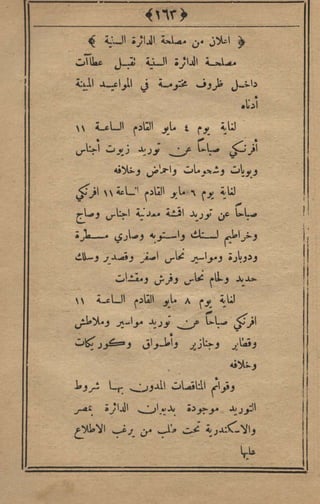 ﴿١٦٣﴾
﴿ اعلان من مصلحة الدائرة السنية ﴾
مصلحة الدائرة السنية تقبل عطاآت
داخل ظروف مختومة في المواعيد المبينة
أدناه
لغاية يوم ٤ مايو القادم الساعة ١١
أفرنكي صباحاً عن توريد زيوت أجناس
وبويات وشحومات واحماض وخلافه
لغاية يوم ٦ مايو القادم الساعة ١١ افرنكي
صباحاً عن توريد اقمشة معدنية اجناس وصاج
وخراطيم لستك واستوبه وصاري مسطرة
ودوبارة ومواسير نحاس اصفر وقصدير وسلك
حديد ولحام نحاس وفرش ومقشات
لغاية يوم ٨ مايو القادم الساعة ١١
افرنكي صباحاً عن توريد مواسير وملاطش
وقطاير وجنازير وأطواق وكوريكات
وخلافه
وقوائم المناقصات المدون بها شروط
التوريد موجودة بديوان الدائرة بمصر
والاسكندرية تحت طلب من يرغب الاطلاع
عليها